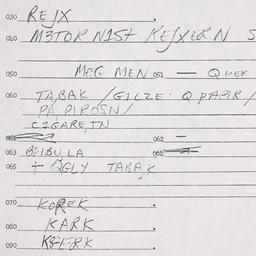 030 REJX
040 M3TOR N1St REJXERN S
050 MEG MEN 051 — Q MEK
060 TABAK / GILZE. Q PAPIR /
PA, PIROSN /
CIGARE,TN
061 062 —
063 BEIBULA 064
065 + QGLY TABAK
070 KOREK
080 KARK
090